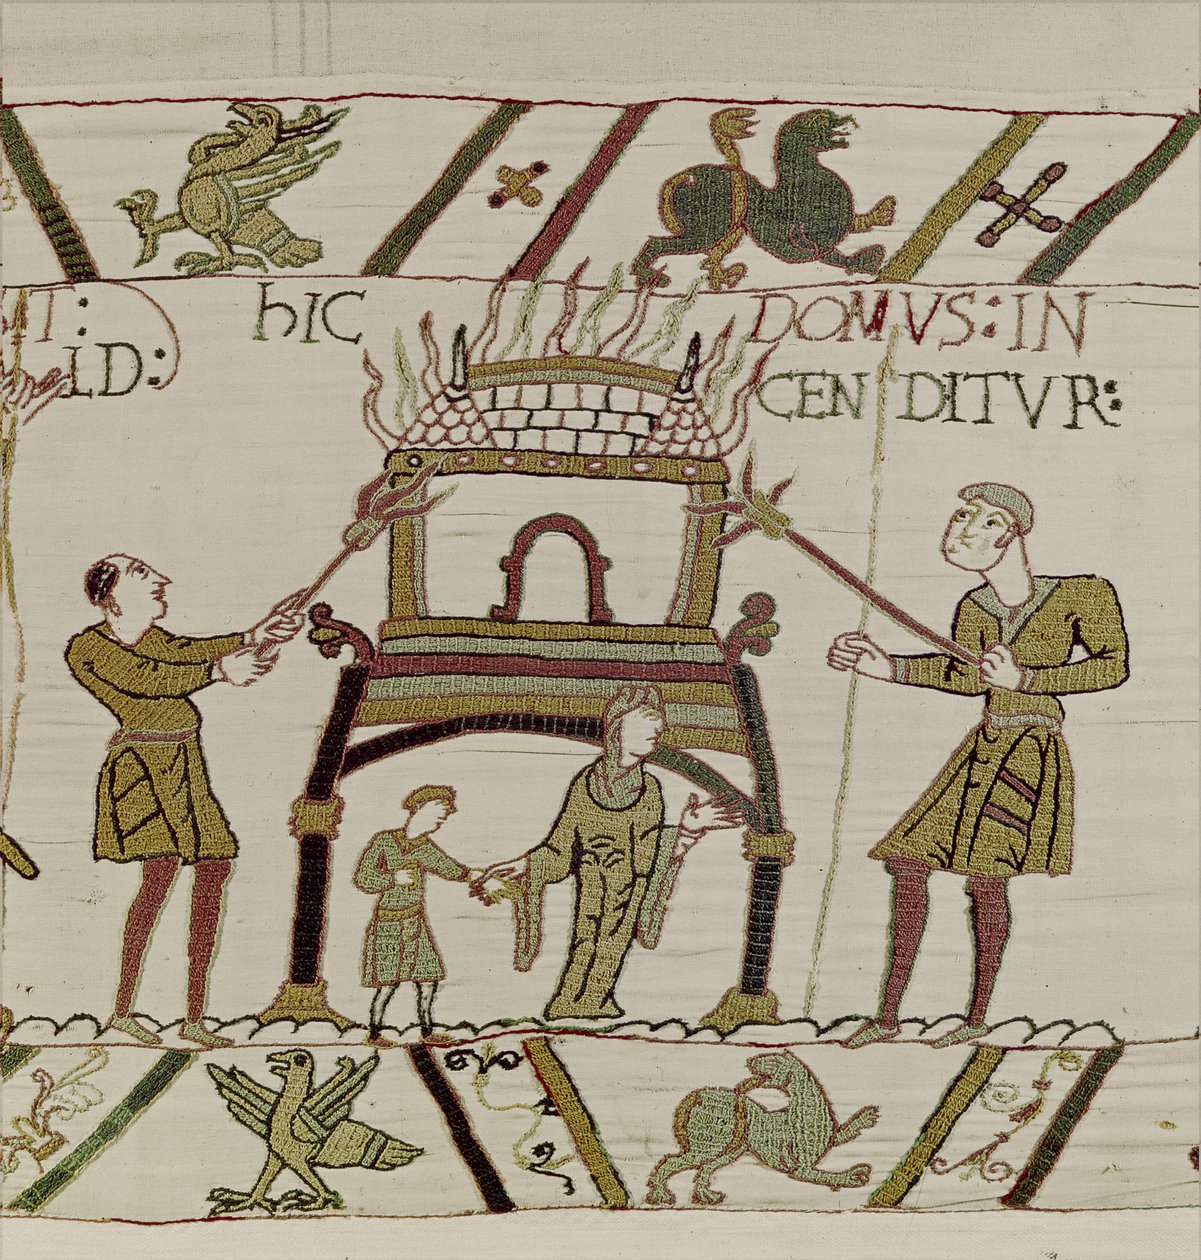 T:
LD:
hIC DOMVS: IN
CENDITVR: